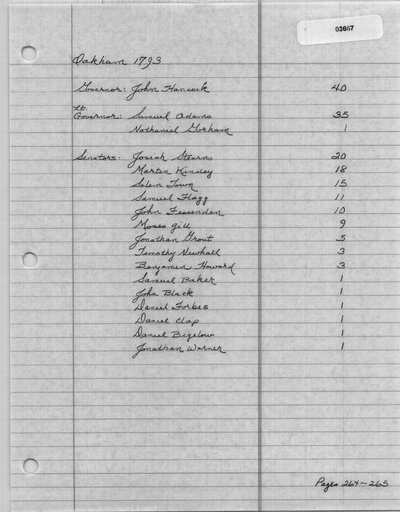 03667
Oakham 1793
Governor: John Hancock 40
Lt.
Governor: Samuel Adams 35
Nathaniel Gorham 1
Senators: Josiah Stearns 20
Martin Kinsley 18
Salem Town 15
Samuel Flagg 11
John Fessenden 10
Moses Gill 9
Jonathan Grout 5
Timothy Newhall 3
Benjamin Howard 3
Samuel Baker 1
John Black 1
Daniel Forbes 1
Daniel Clap 1
Daniel Bigelow 1
Jonathan Warner 1
Pages 264-265